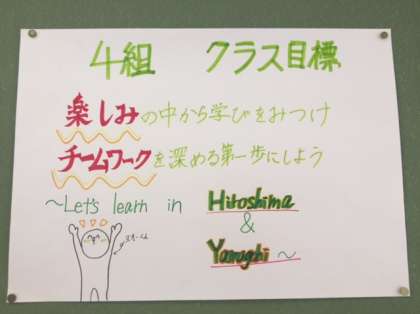 4組 クラス目標
楽しみの中から学びをみつけ
チームワークを深める第一歩にしよう
~Let's learn in Hiroshima
&
Yamaghi ~